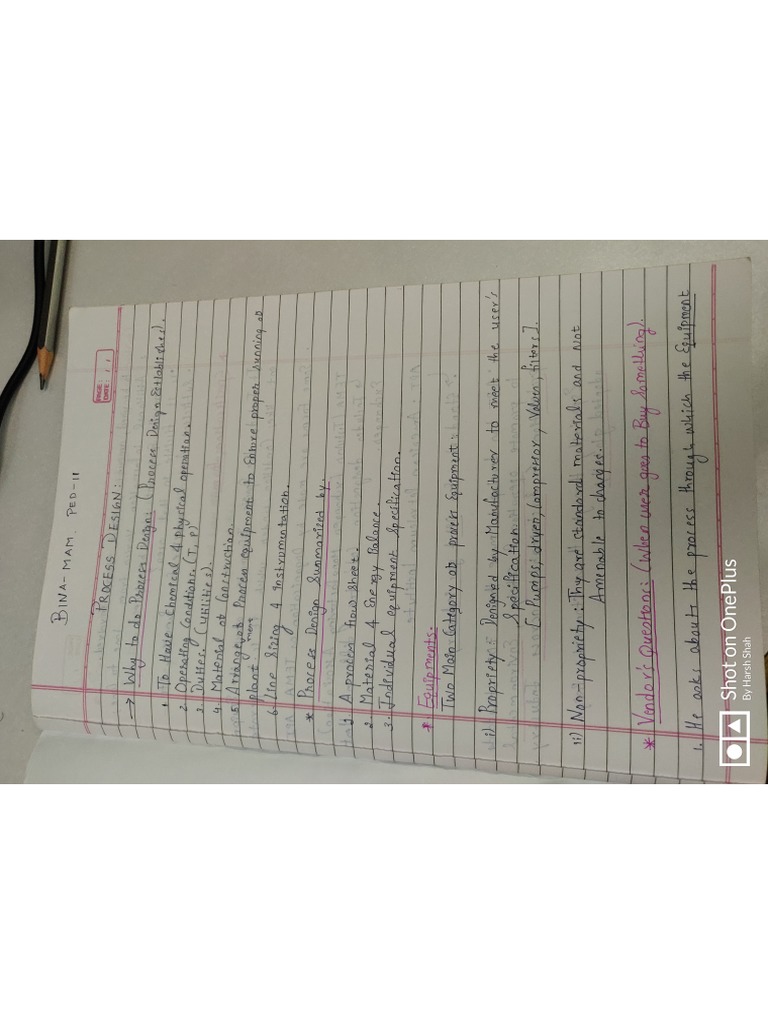 BINA-MAM. PED-II
PAGE
DATE
PROCESS DESIGN:
→ Why to do Process Design: (Process Design Establishes).
1. To Have Chemical & physical operation.
2. Operating Conditions. (T, P)
3. Duties. (Utilities).
4. Material of Construction.
5. Arrangement of Process equipment to Ensure proper running of
plant
6. Line Sizing & Instrumentation.
* Process Design Summarized by:
1. A process flow sheet.
2. Material & Energy Balance.
3. Individual equipment Specification.
* Equipments.
Two Main Category of process Equipment:
i) Propriety: Designed by Manufacturer to meet the user's
Specification.
[Pumps, dryer, Compressor, Valves, filters].
ii) Non-propriety: They are standard materials and Not
Amenable to changes.
* Vendor's Question: (When user goes to Buy Something).
1. He asks about the process through which the Equipment
Shot on OnePlus
By Harsh Shah